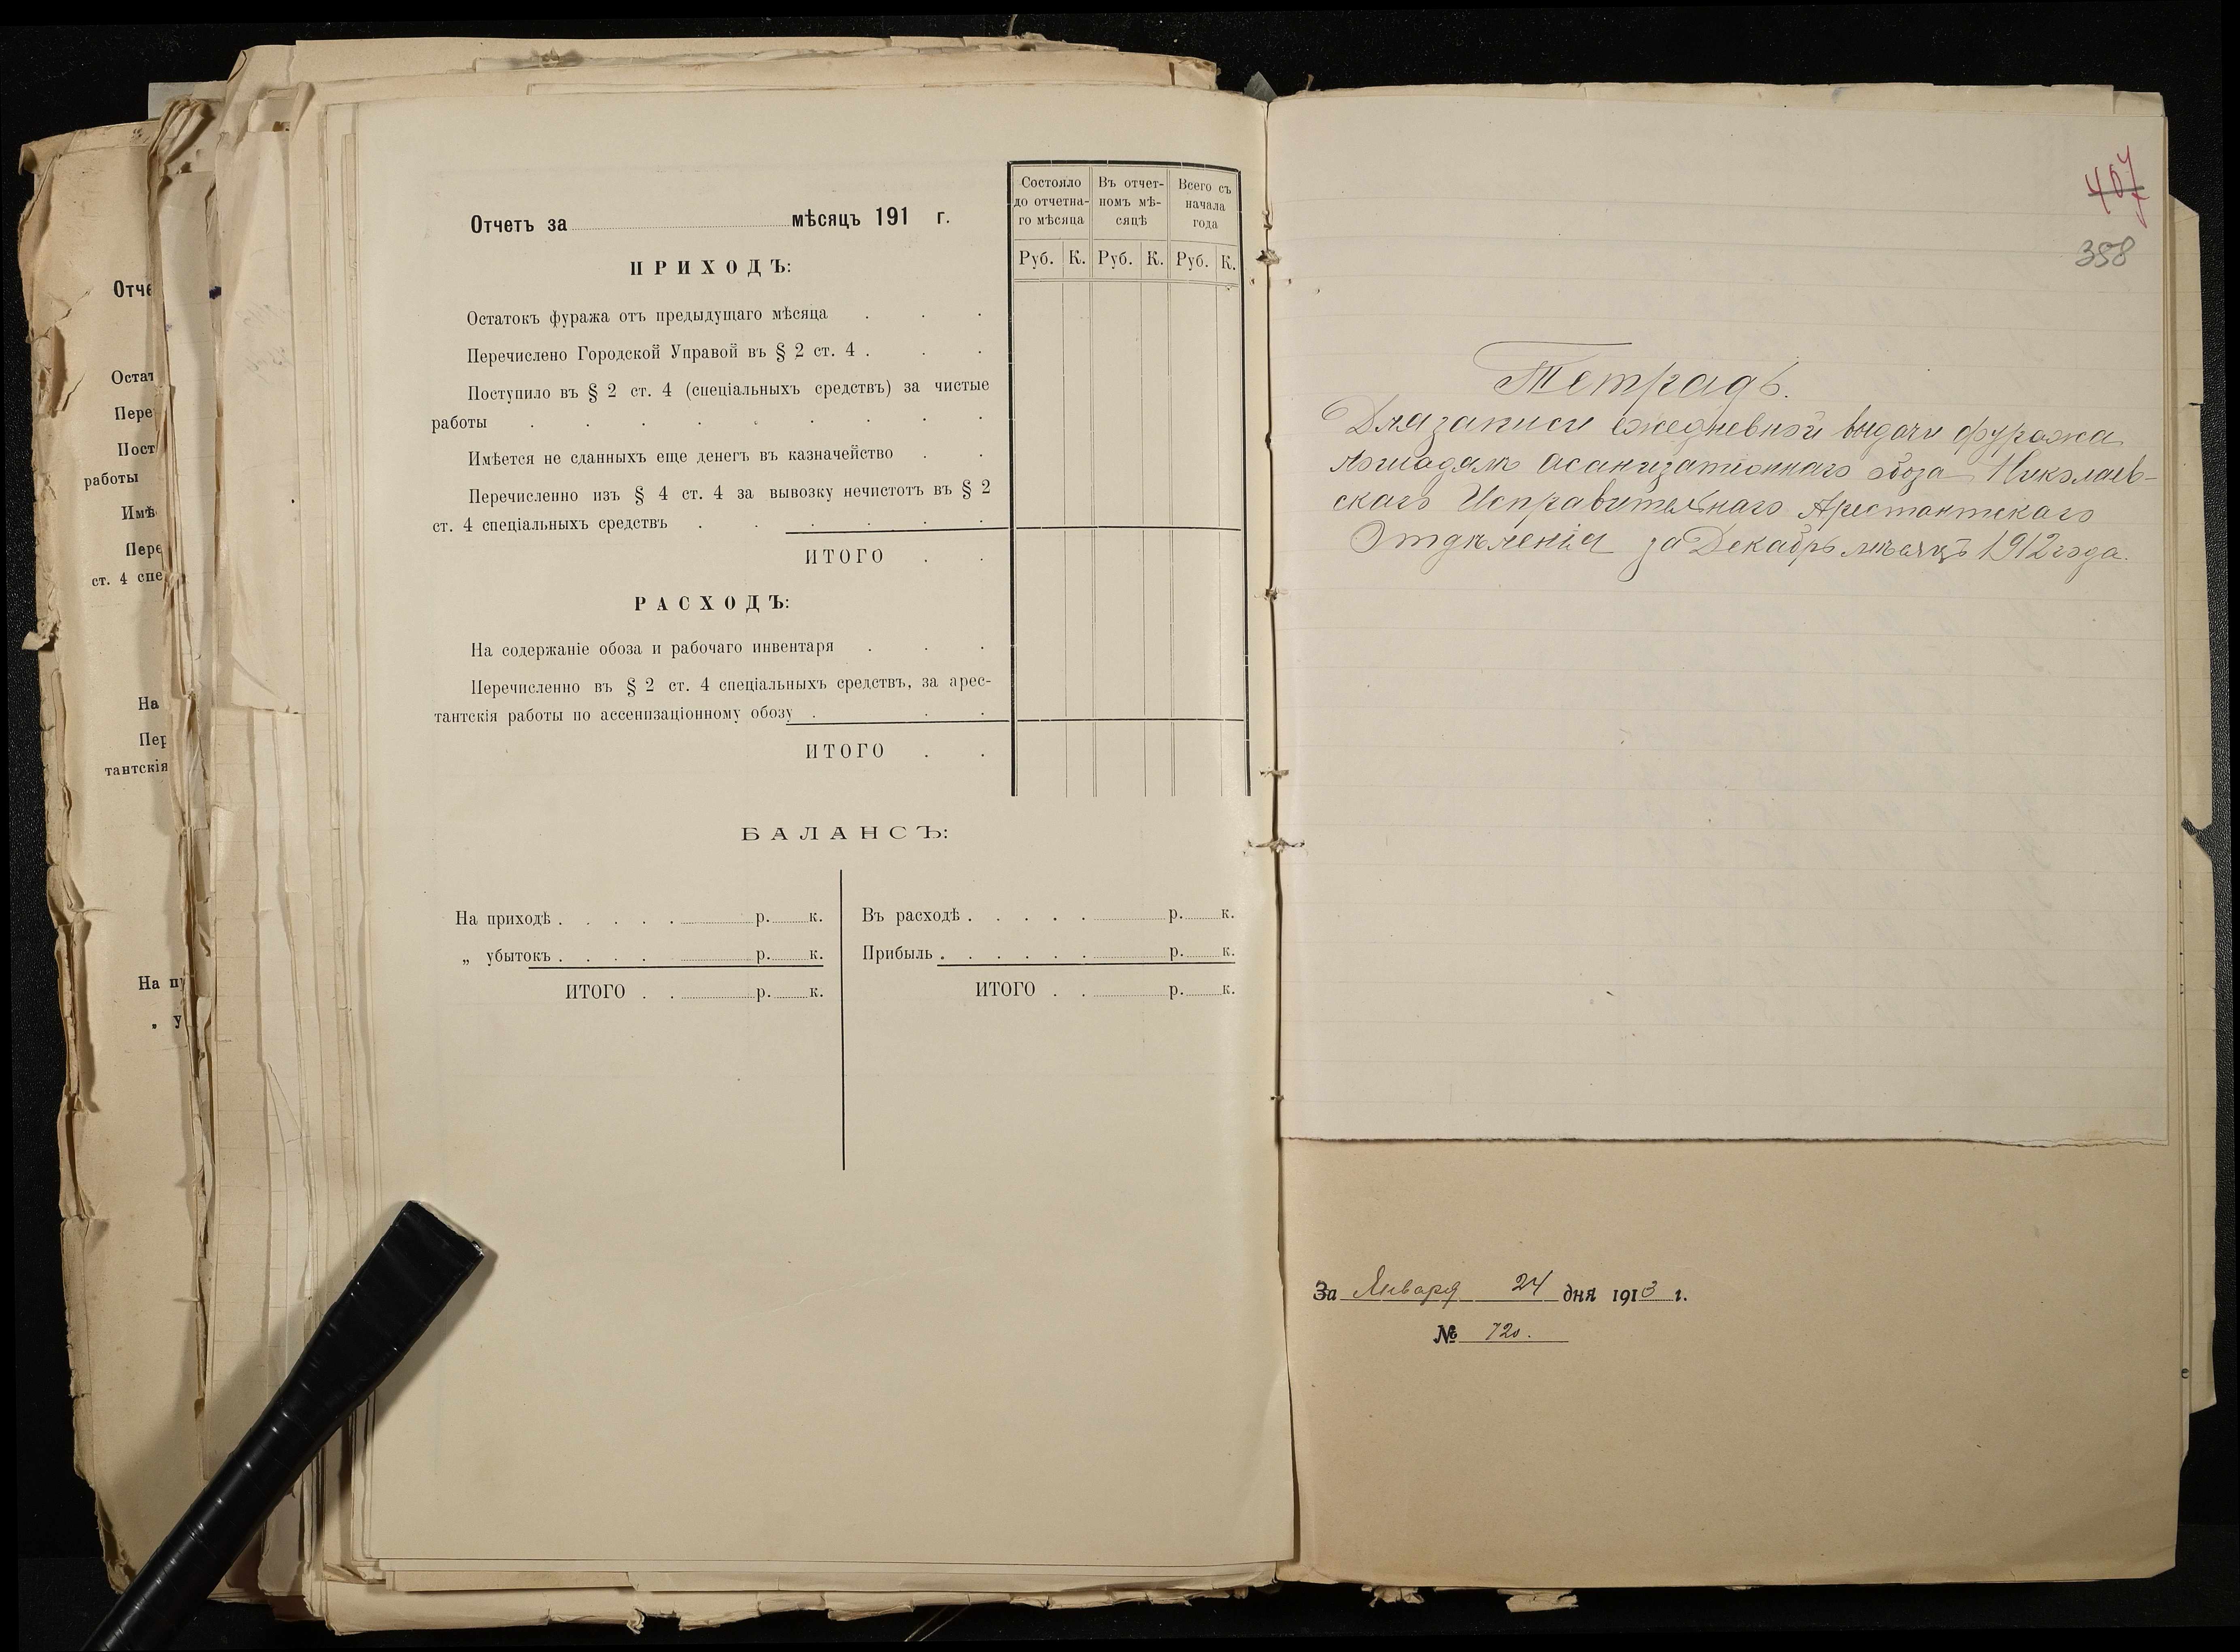 Отче
Остат
Пере
Пост
работы
Имѣ
Пере
ст. 4 спе
На
Пер
тантскія
На пр
„ у
Отчетъ за мѣсяцъ 191 г.
Состояло до отчетна-го мѣсяца
Въ отчет-номъ мѣ-сяцѣ
Всего съ начала года
Руб. К. Руб. К. Руб. К.
ПРИХОДЪ:
Остатокъ фуража отъ предыдущаго мѣсяца . . .
Перечислено Городской Управой въ § 2 ст. 4 . . .
Поступило въ § 2 ст. 4 (спеціальныхъ средствъ) за чистые
работы . . . . . . . . .
Имѣется не сданныхъ еще денегъ въ казначейство . .
Перечисленно изъ § 4 ст. 4 за вывозку нечистотъ въ § 2
ст. 4 спеціальныхъ средствъ . . . . . .
ИТОГО . .
РАСХОДЪ:
На содержаніе обоза и рабочаго инвентаря . . .
Перечисленно въ § 2 ст. 4 спеціальныхъ средствъ, за арес-
тантскія работы по ассенизаціонному обозу . . .
ИТОГО . .
БАЛАНСЪ:
На приходѣ . . . . . р. к.
„ убытокъ . . . . р. к.
ИТОГО . . р. к.
Въ расходѣ . . . . . р. к.
Прибыль . . . . . . р. к.
ИТОГО . . р. к.
407
358
Тетрадь.
Для записи ежедневной выдачи фуража
лошадямъ асанизатионнаго обоза Николаев-
скаго Исправительнаго Арестантскаго
Отдѣленія за Декабрь мѣсяцъ 1912 года.
За Января 24 дня 1913 г.
№ 720.